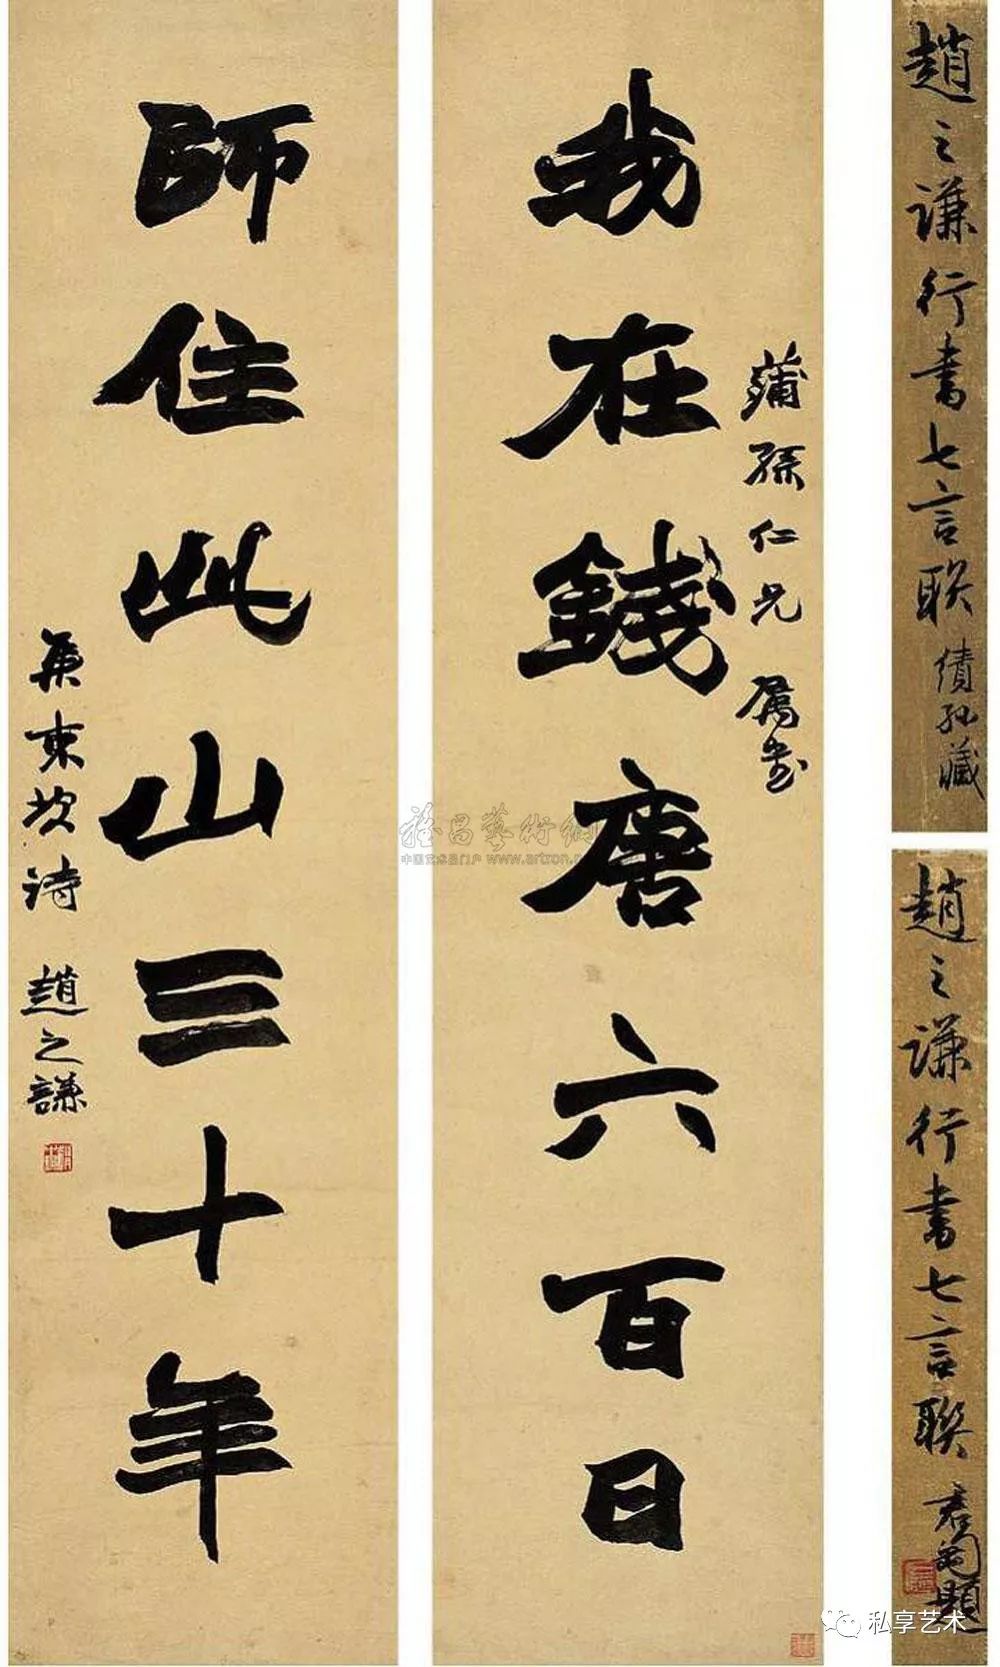 我在錢唐六百日
蒲孫仁兄屬書
師住此山三十年
集東坡詩 趙之謙
趙之谦行书七言联 績孙藏
趙之谦行书七言联
題
雅昌藝術網
中国艺术品门户 www.artron.n
私享艺术